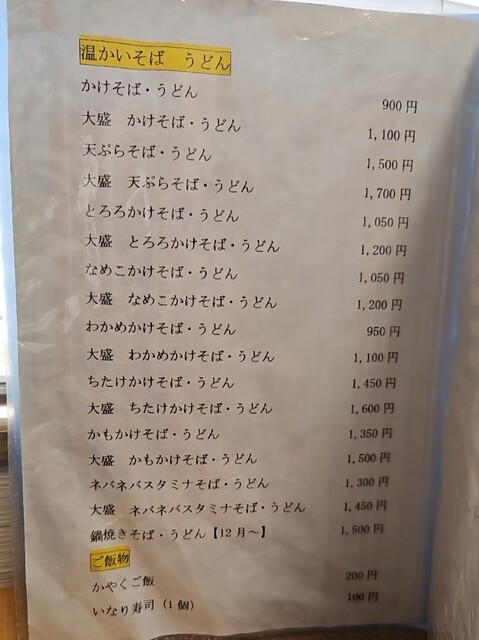 温かいそば　うどん
かけそば・うどん　900円
大盛　かけそば・うどん　1,100円
天ぷらそば・うどん　1,500円
大盛　天ぷらそば・うどん　1,700円
とろろかけそば・うどん　1,050円
大盛　とろろかけそば・うどん　1,200円
なめこかけそば・うどん　1,050円
大盛　なめこかけそば・うどん　1,200円
わかめかけそば・うどん　950円
大盛　わかめかけそば・うどん　1,100円
ちたけかけそば・うどん　1,450円
大盛　ちたけかけそば・うどん　1,600円
かもかけそば・うどん　1,350円
大盛　かもかけそば・うどん　1,500円
ネバネバスタミナそば・うどん　1,300円
大盛　ネバネバスタミナそば・うどん　1,450円
鍋焼きそば・うどん【12月～】　1,500円
ご飯物
かやくご飯　200円
いなり寿司（1個）　100円